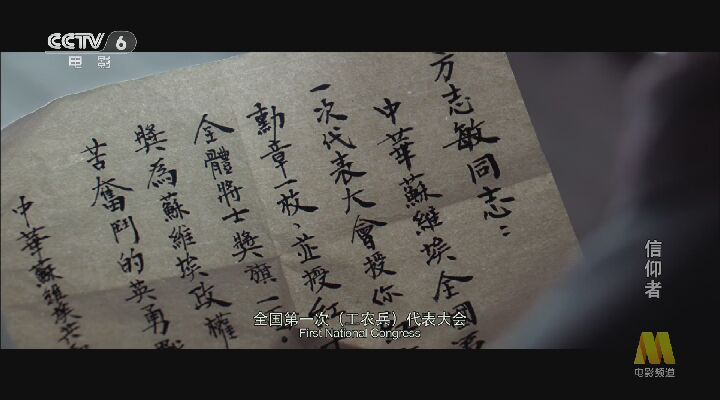 CCTV 6
电影
方志敏同志：
中華蘇維埃全國
一次代表大會授你
勳章一枚、並授紅
全體將士獎旗一
獎為蘇維埃政權
苦奮鬥的英勇戰
中華蘇維埃共和
信仰者
全国第一次（工农兵）代表大会
First National Congress
电影频道